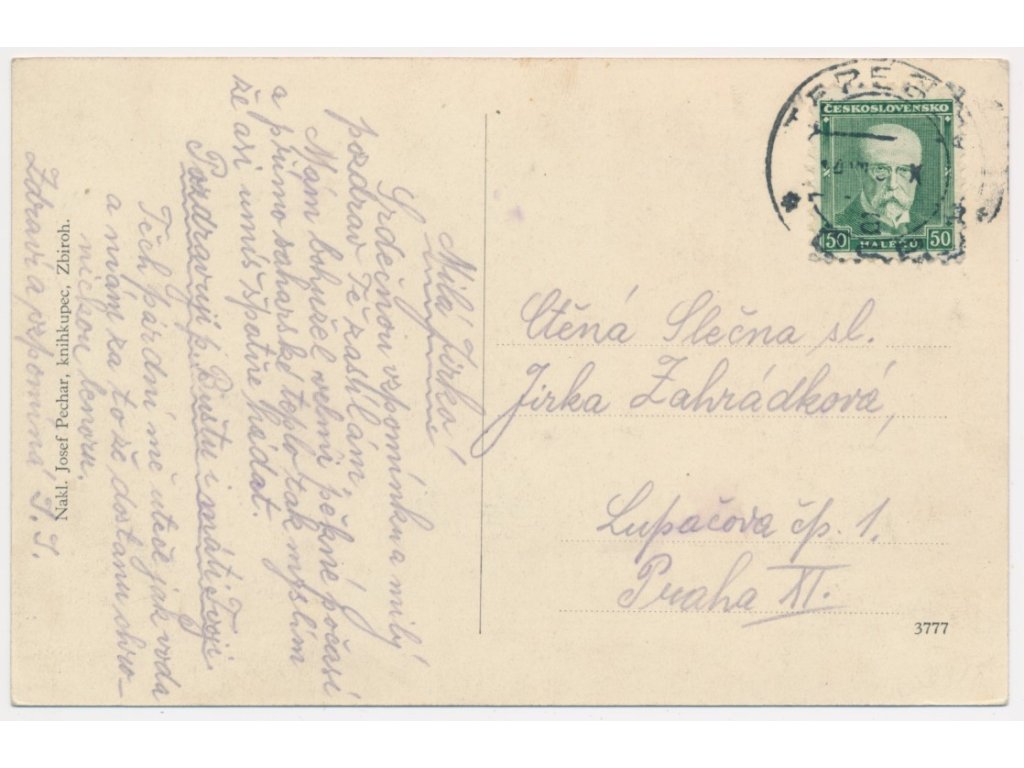 Milá Jirko!
Srdečnou vzpomínku a milý
pozdrav Ti zasílám.
Mám bohužel velmi pěkné počasí
a přímo saharské teplo tak myslím
že asi umíš špatně hádat.
Pozdravuji p. Bustu i máti Tvoji
Těch pár dní mě uteče jak voda
a mám za to že dostanu chro-
nickou lenoru.
Zdraví a vzpomíná J. J.
Nakl. Josef Pechar, knihkupec, Zbiroh.
ČESKOSLOVENSKO
50 HALÉŘŮ 50
Ctěná Slečna sl.
Jirka Zahrádková,
Lupačova čp. 1.
Praha XI.
3777